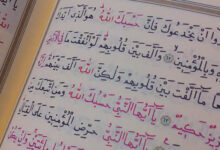 أَن يَخْدَعُوكَ فَإِنَّ حَسْبَكَ اللَّهُ هُوَ الَّذِي أَيَّدَكَ
وَبِالْمُؤْمِنِينَ ٦٢ وَأَلَّفَ بَيْنَ قُلُوبِهِمْ لَوْ أَنفَقْتَ مَا فِي
مَّا أَلَّفْتَ بَيْنَ قُلُوبِهِمْ وَلَٰكِنَّ اللَّهَ أَلَّفَ بَيْنَهُمْ
حَكِيمٌ ٦٣ يَٰٓأَيُّهَا النَّبِيُّ حَسْبُكَ اللَّهُ
يَٰٓأَيُّهَا النَّبِيُّ حَرِّضِ الْمُؤْمِنِينَ عَلَى